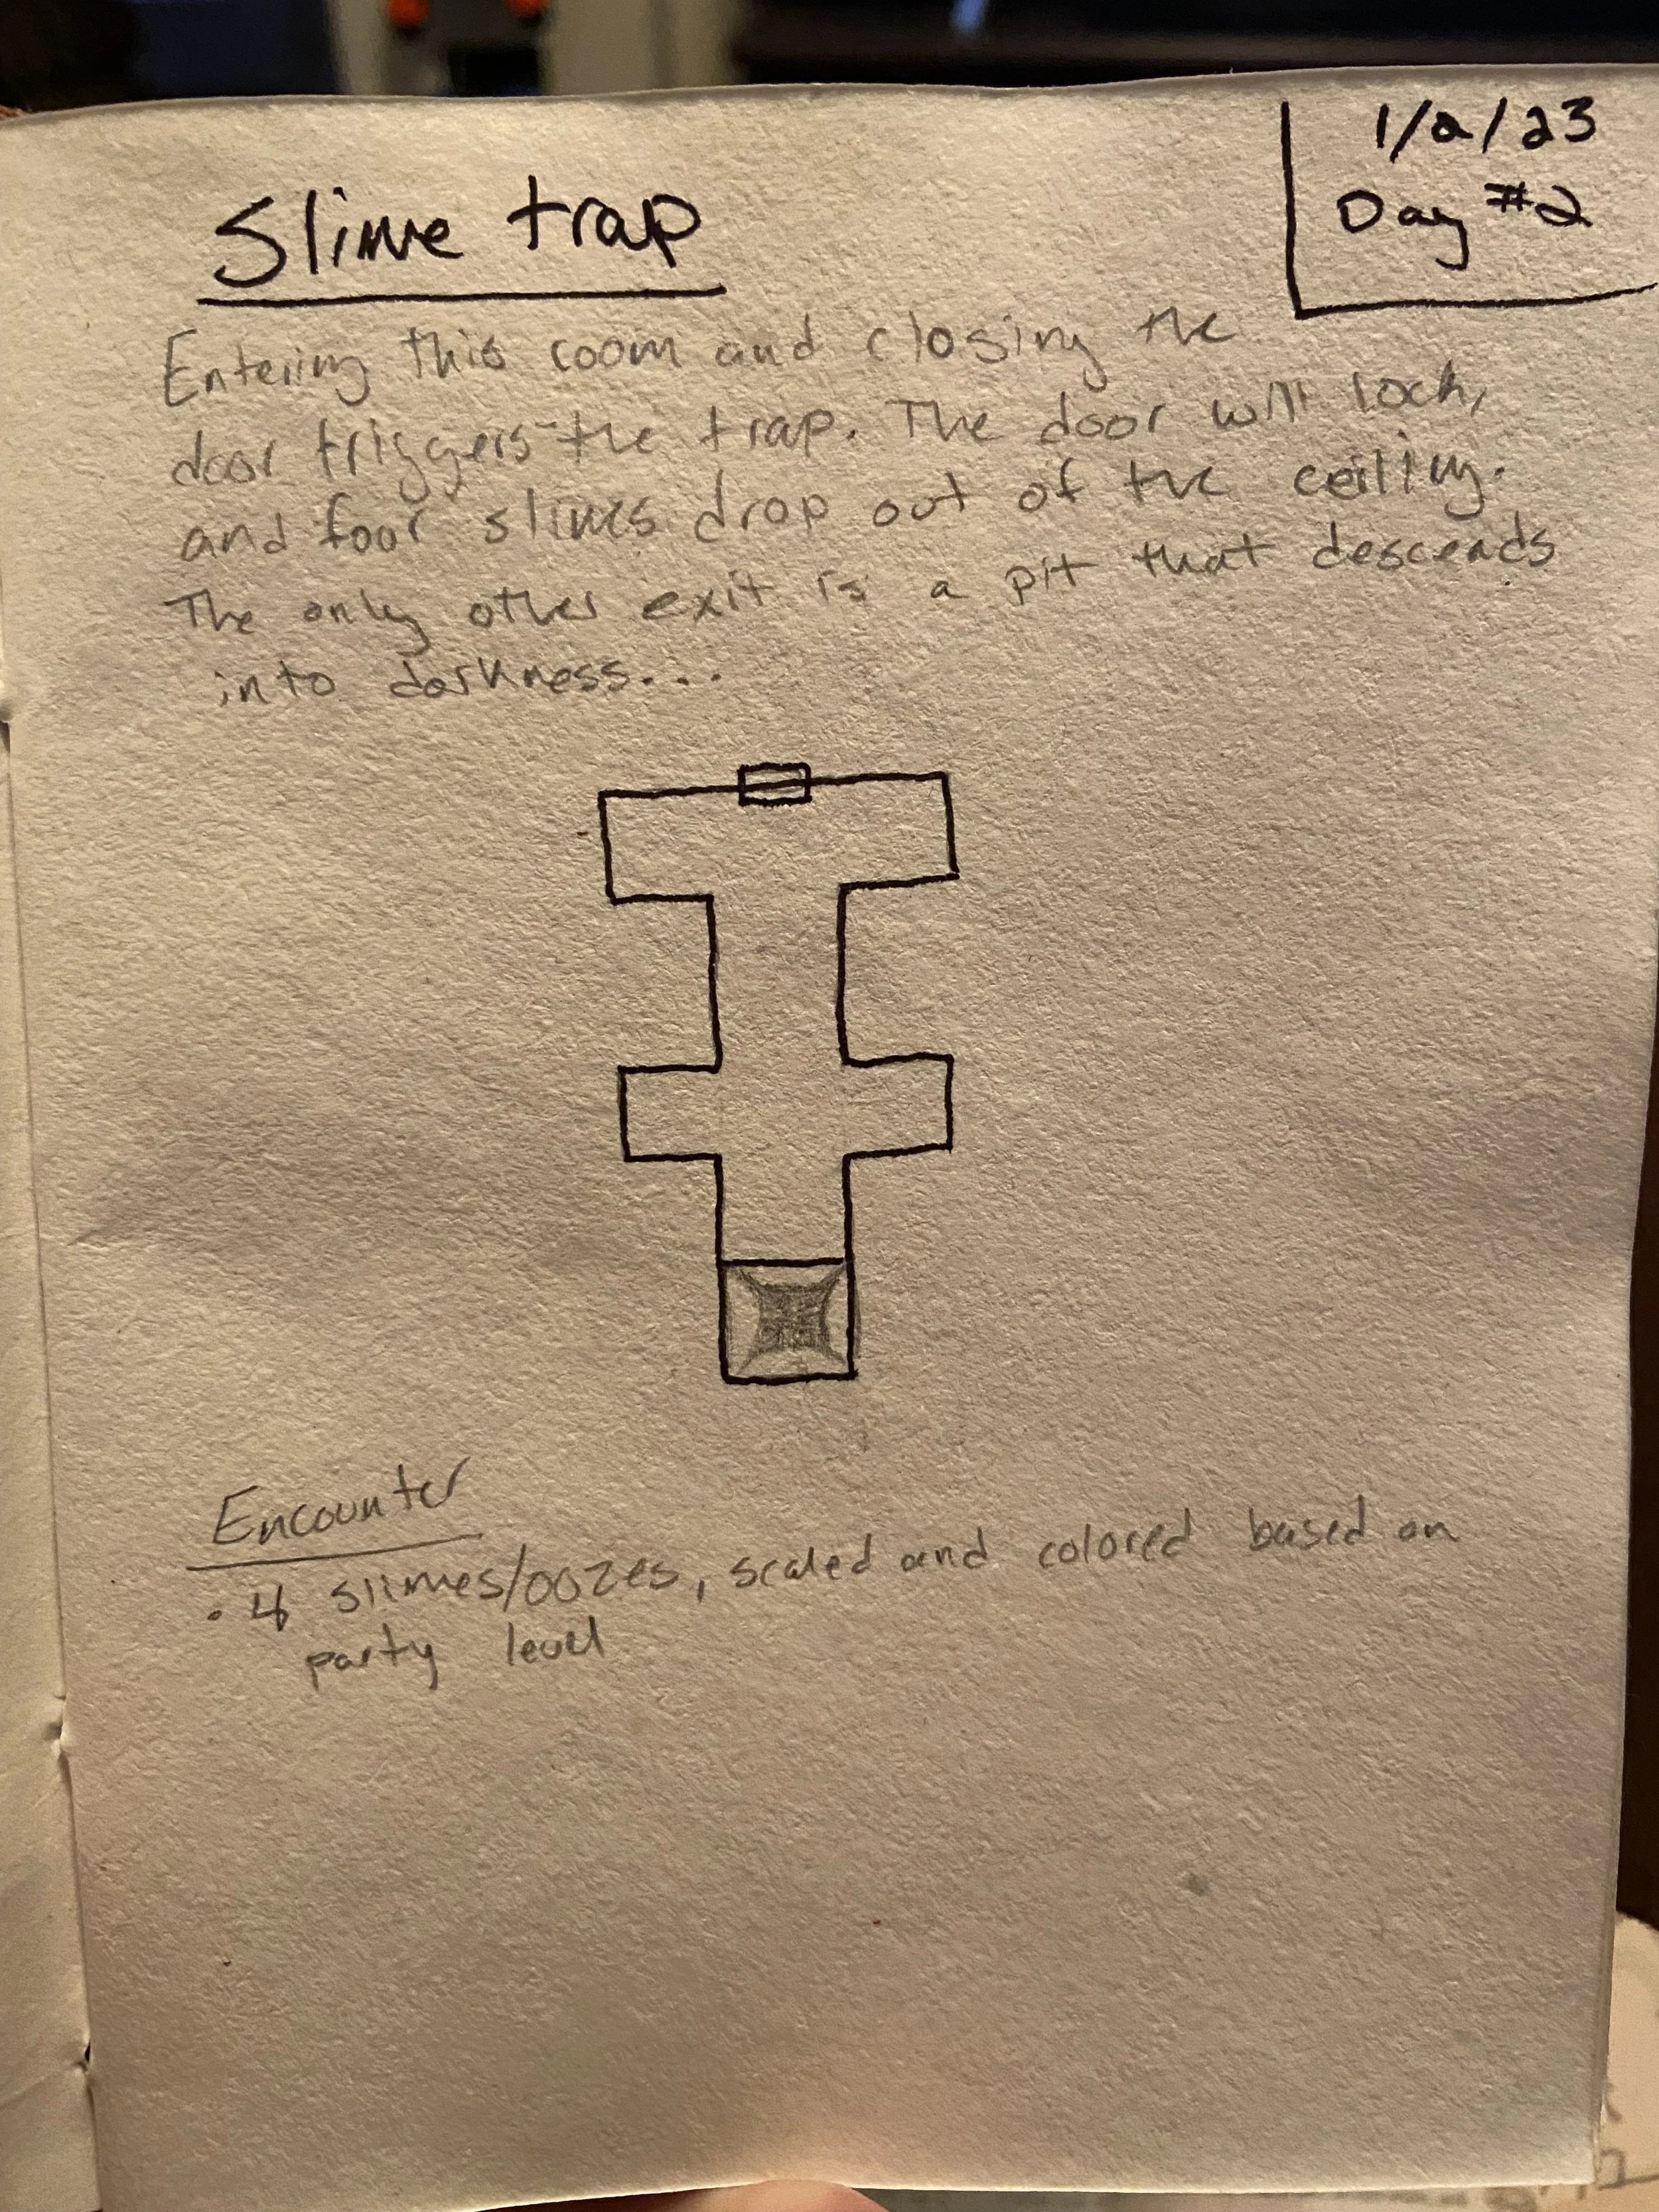 1/2/23
Day #2
Slime trap
Entering this room and closing the
door triggers the trap. The door will lock,
and four slimes drop out of the ceiling.
The only other exit is a pit that descends
into darkness....
Encounter
• 4 slimes/oozes, scaled and colored based on
party level